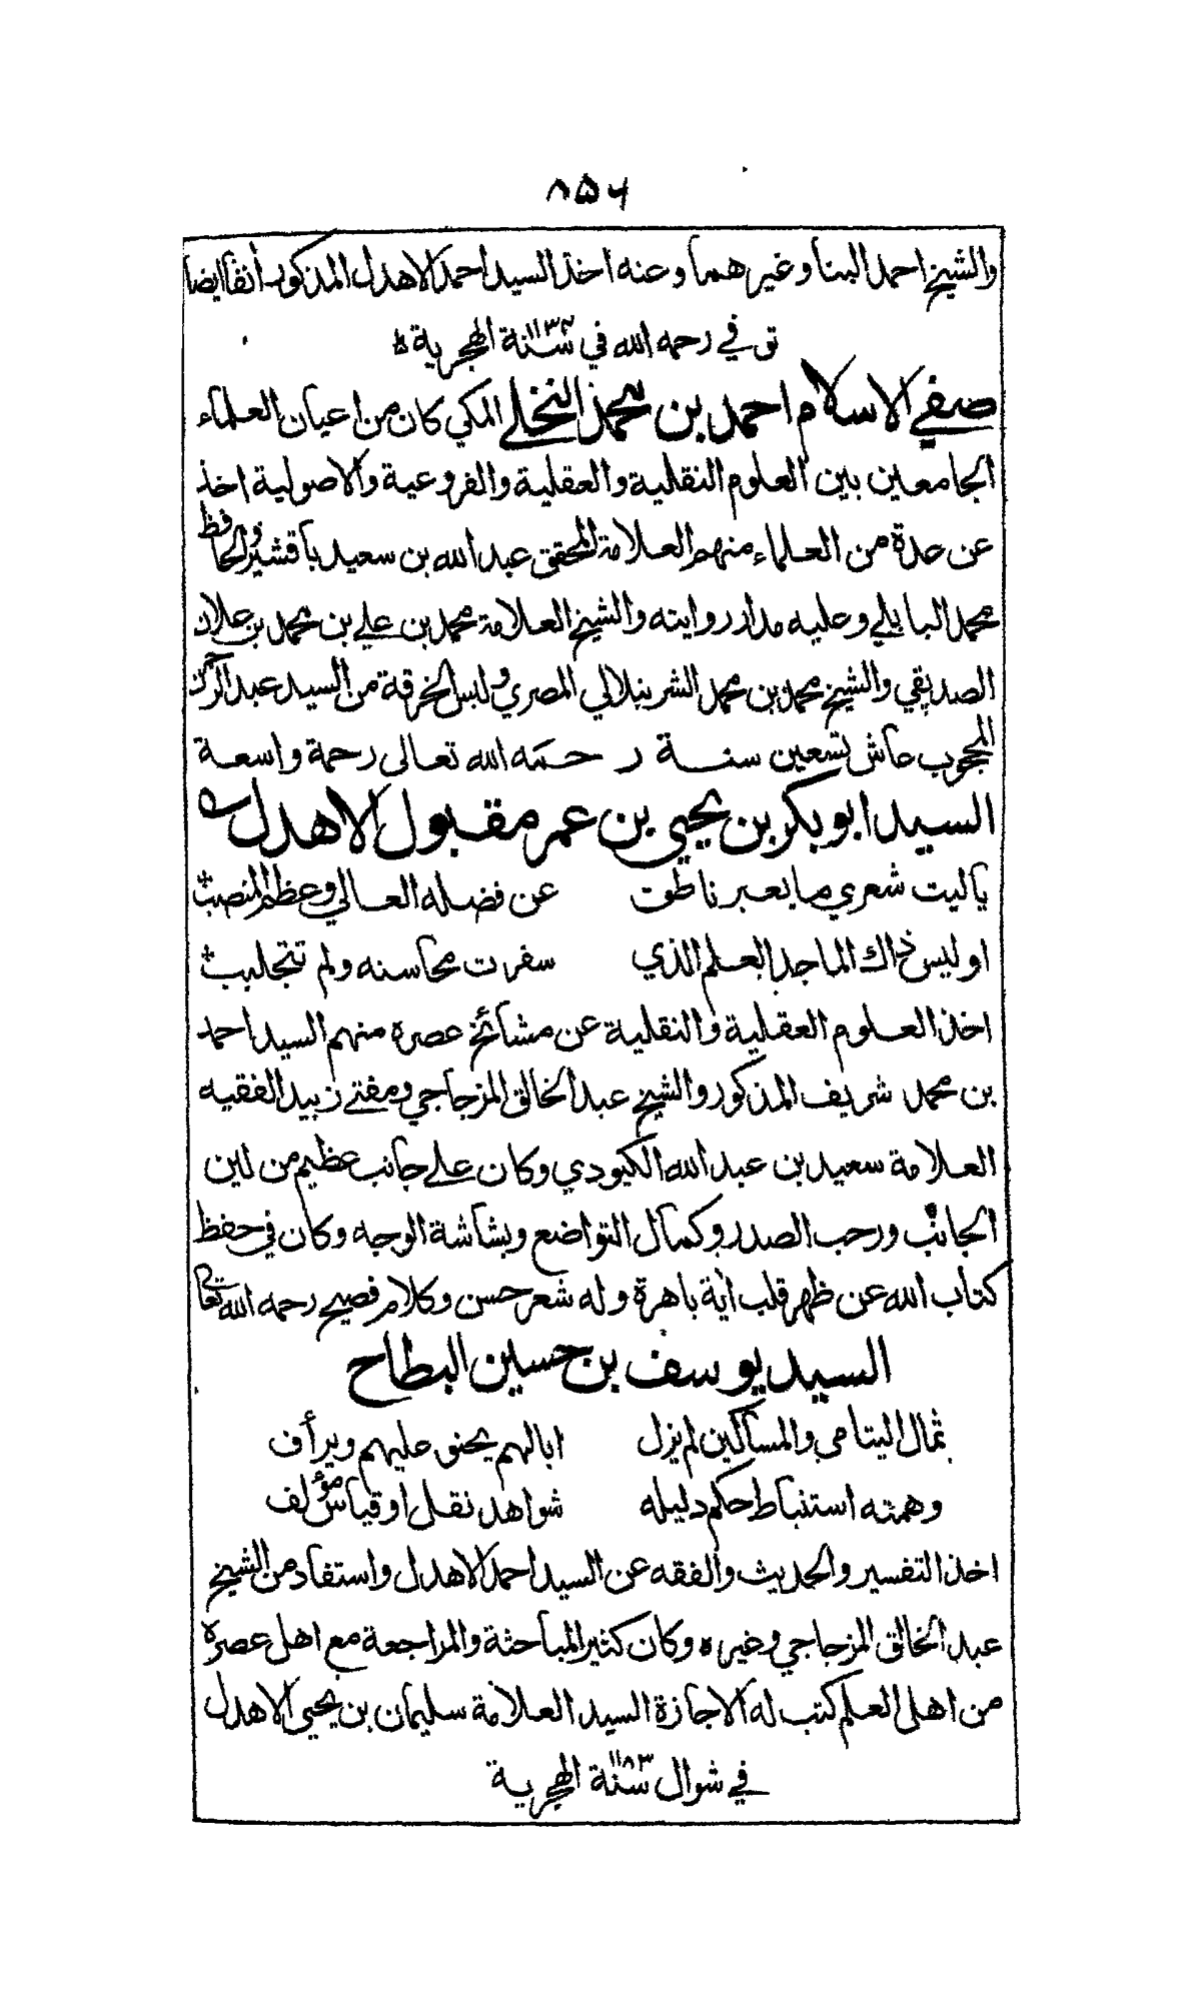 ٨٥٦
والشيخ احمد البنا وغيرهما وعنه اخذ السيد احمد الاهدل المذكور أنفا ايضا
توفي رحمه الله في سنة ١١٣٢ الهجرية
صفي الاسلام احمد بن محمد النخلي المكي كان من اعيان العلماء
الجامعين بين العلوم النقلية والعقلية والفروعية والاصولية اخذ
عن عدة من العلماء منهم العلامة المحقق عبد الله بن سعيد باقشير والحافظ
محمد البابلي وعليه مدار روايته والشيخ العلامة محمد بن علي بن محمد بن علان
الصديقي والشيخ محمد بن محمد الشرينلالي المصري ولبس الخرقة من السيد عبد الرحمن
المحجوب عاش تسعين سنة رحمه الله تعالى رحمة واسعة
السيد ابو بكر بن يحيى بن عمر مقبول الاهدل
ياليت شعري ما يعبر ناطق عن فضله العالي وعظم المنصب
اوليس ذاك الماجد العلم الذي سفرت محاسنه ولم تتجلبب
اخذ العلوم العقلية والنقلية عن مشائخ عصره منهم السيد احمد
بن محمد شريف المذكور والشيخ عبد الخالق المزجاجي ومفتي زبيد الفقيه
العلامة سعيد بن عبد الله الكبودي وكان على جانب عظيم من لين
الجانب ورحب الصدر وكمال التواضع وبشاشة الوجه وكان في حفظ
كتاب الله عن ظهر قلب أية باهرة وله شعر حسن وكلام فصيح رحمه الله تعالى
السيد يوسف بن حسين البطاح
ثمال اليتامى والمساكين لم يزل ابا لهم يحنو عليهم ويرأف
وهمته استنباط حكم دليله شواهد نقل او قياس مؤلف
اخذ التفسير والحديث والفقه عن السيد احمد الاهدل واستفاد من الشيخ
عبد الخالق المزجاجي وغيره وكان كثير المباحثة والمراجعة مع اهل عصره
من اهل العلم كتب له الاجازة السيد العلامة سليمان بن يحيى الاهدل
في شوال سنة ١١٨٣ الهجرية